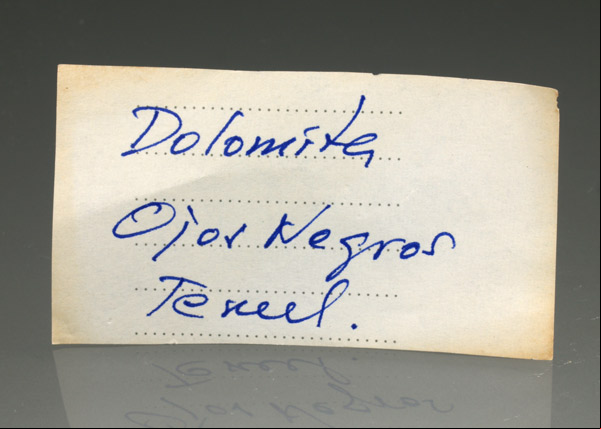 Dolomita
Ojos Negros
Teruel.